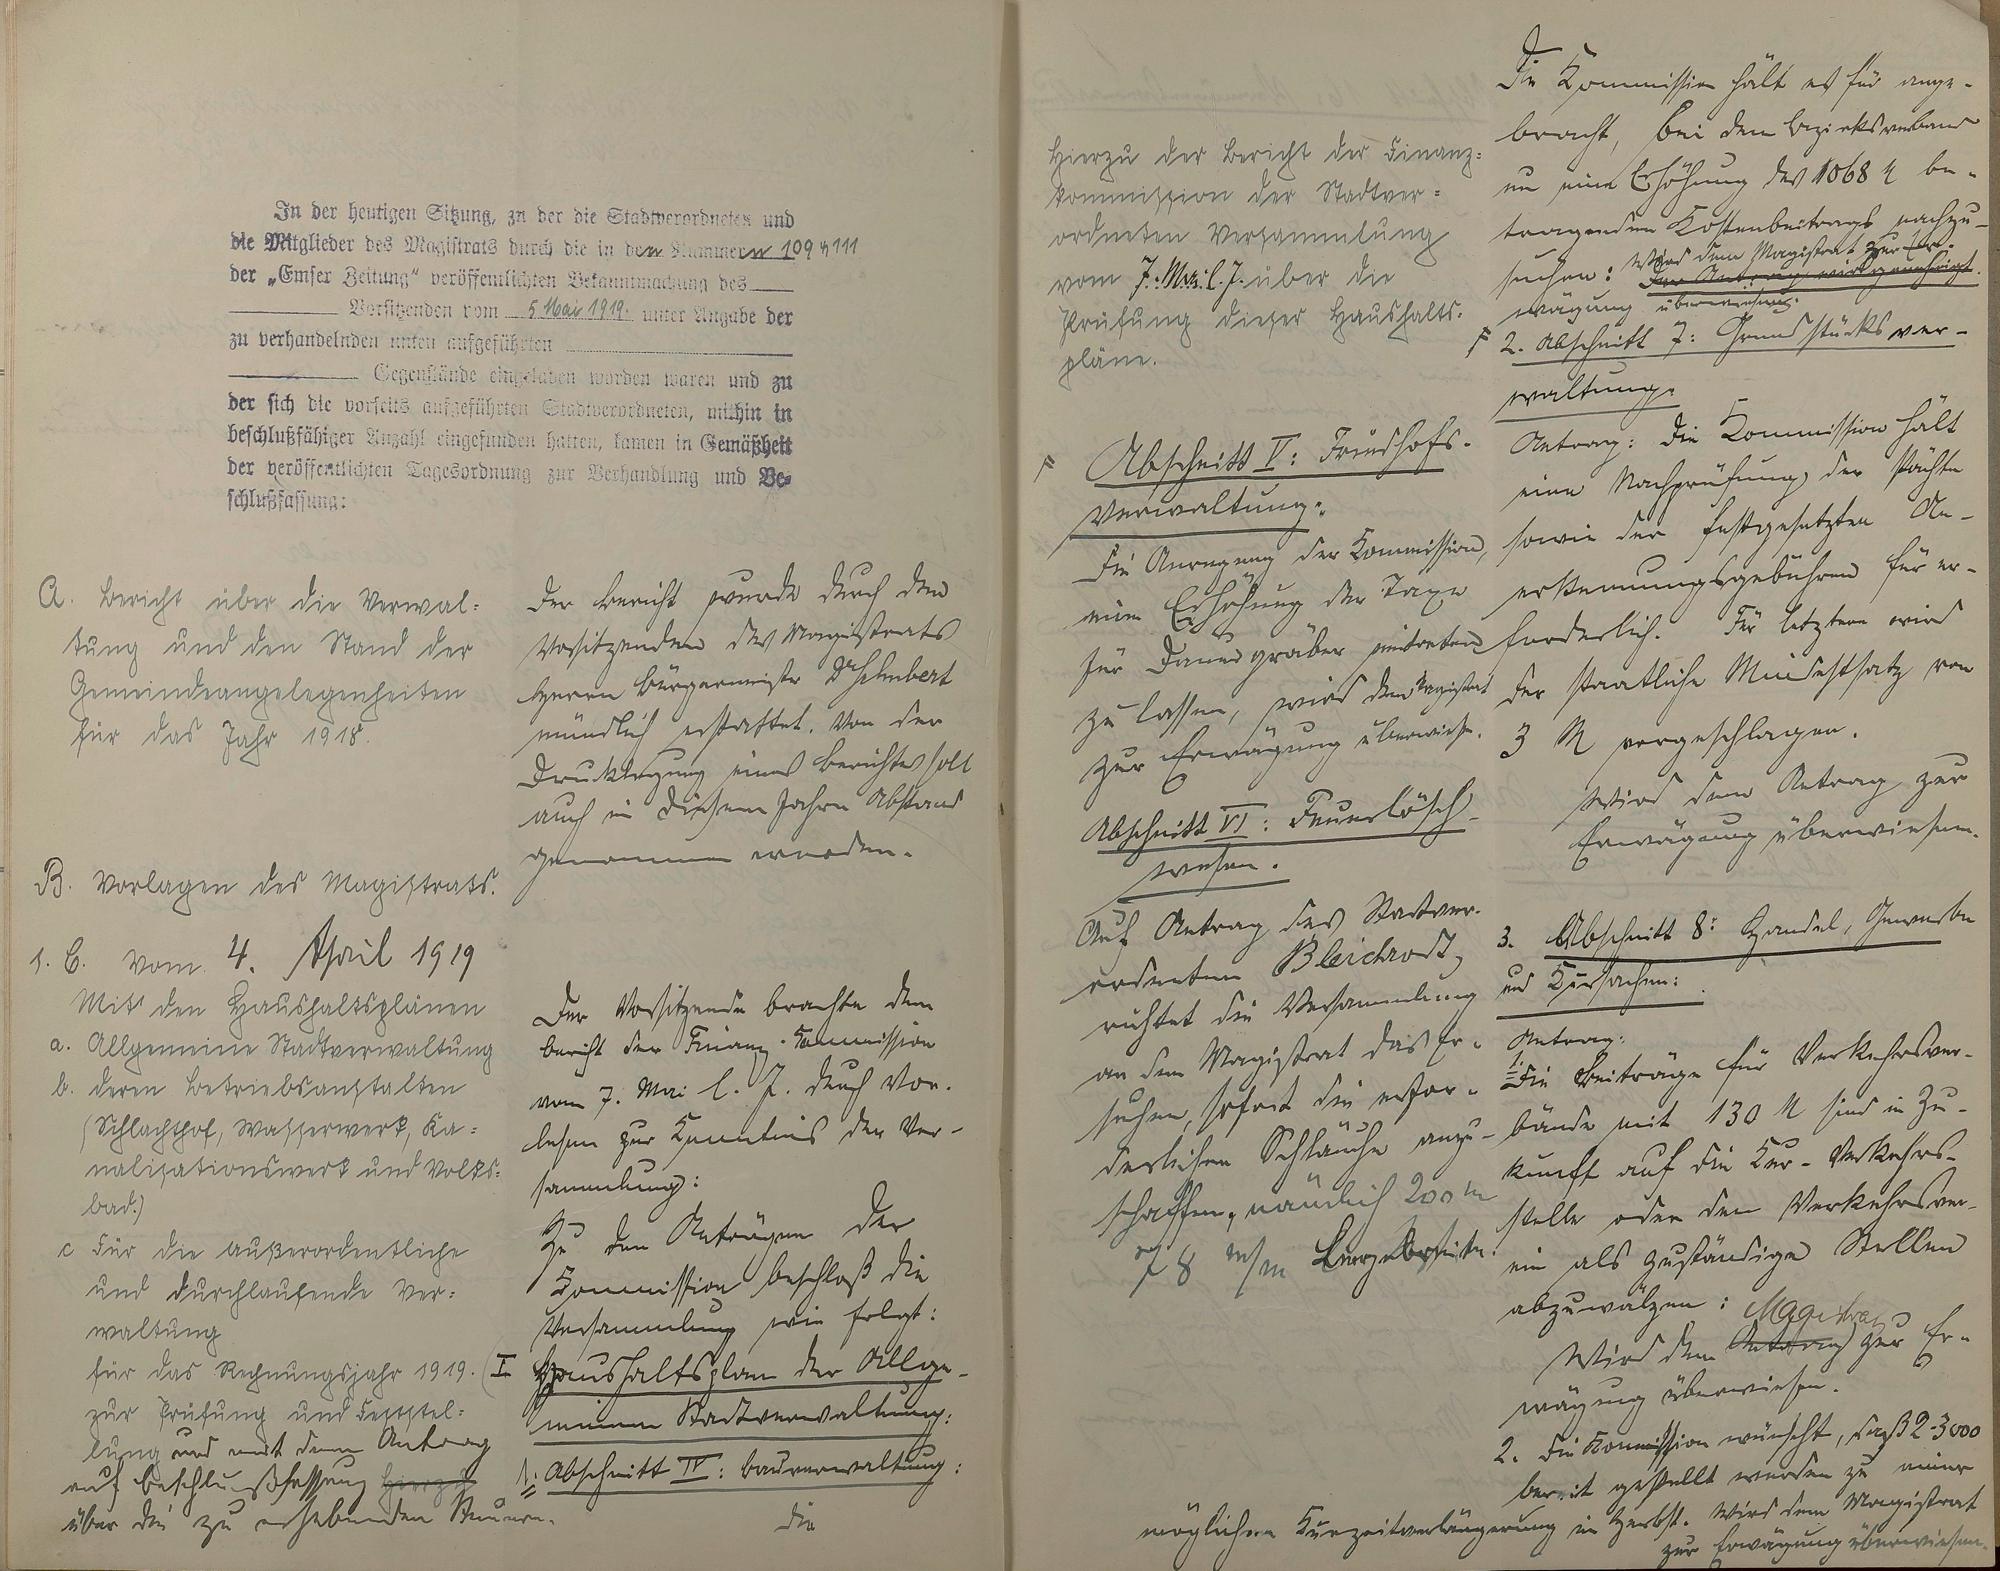 In der heutigen Sitzung, zu der die Stadtverordneten und
die Mitglieder des Magistrats durch die in den Nummern 109 u 111
der „Emser Zeitung“ veröffentlichten Bekanntmachung des
Vorsitzenden vom 5 Mai 1919. unter Angabe der
zu verhandelnden unten aufgeführten
Gegenstände eingeladen worden waren und zu
der sich die vorseits aufgeführten Stadtverordneten, mithin in
beschlußfähiger Anzahl eingefunden hatten, kamen in Gemäßheit
der veröffentlichten Tagesordnung zur Verhandlung und Be-
schlußfassung:
A. Bericht über die Verwal=
tung und den Stand der
Gemeindeangelegenheiten
für das Jahr 1918.
Der Bericht wurde durch den
Vorsitzenden des Magistrats
Herrn Bürgermeister Dr
mündlich erstattet. Von der
Drucklegung eines Berichtes soll
auch in diesem Jahre Abstand
genommen werden.
B. Vorlagen des Magistrats.
1. B. vom 4. April 1919
Mit den Haushaltsplänen
a. Allgemeine Stadtverwaltung
b. deren Betriebsanstalten
(Schlachthof, Wasserwerk, Ka=
nalisationswerk und Volks=
bad.)
c Für die außerordentliche
und durchlaufende Ver=
waltung
für das Rechnungsjahr 1919.
zur Prüfung und Feststel=
lung und mit dem Antrag
auf Beschlußfassung hierzu
über die zu erhebenden Steuern.
Der Vorsitzende brachte den
Bericht der Finanz-Kommission
vom 7. Mai l. J. durch Vor-
lesen zur Kenntnis der Ver-
sammlung:
Zu den Anträgen der
Kommission beschloß die
Versammlung wie folgt:
I Haushaltsplan der Allge-
meinen Stadtverwaltung:
1. Abschnitt IV: Bauverwaltung:
Die
Hierzu der Bericht der Finanz=
kommission der Stadtver=
ordneten Versammlung
vom 7. Mai l. J. über die
Prüfung dieser Haushalts-
pläne.
Abschnitt V: Friedhofs-
verwaltung:
Die Anregung der Kommission,
eine Erhöhung der Taxe
für Dauergräber eintreten
zu lassen, wird dem Magistrat
zur Erwägung überwiesen.
Abschnitt VI: Feuerlösch-
wesen.
Auf Antrag des Stadtver-
ordneten Bleichrodt,
richtet die Versammlung
an den Magistrat das Er-
suchen, sofort die erfor-
derlichen Schläuche anzu-
schaffen, nämlich 200 m
78 m/m
Die Kommission hält es für ange-
bracht, bei dem Bezirksverband
um eine Erhöhung des 1068 M be-
tragenden Kostenbeitrags nachzu-
suchen: Wird dem Magistrat zur Er-
Der Antrag wird genehmigt.
wägung überwiesen.
2. Abschnitt 7: Grundstücksver-
waltung.
Antrag: Die Kommission hält
eine Nachprüfung der Pächte
sowie der festgesetzten An-
erkennungsgebühren für er-
forderlich. Für letztere wird
der staatliche Mindestsatz von
3 M vorgeschlagen.
Wird dem Antrag zur
Erwägung überwiesen.
3. Abschnitt 8: Handel, Gewerbe
und Kursachen:
Antrag:
1. Die Beiträge für Verkehrsver-
bände mit 130 M sind in Zu-
kunft auf die Kur-Verkehrs-
stelle oder den Verkehrsver-
ein als zuständige Stellen
abzuwälzen: Magistrat
Wird dem Antrag zur Er-
wägung überwiesen.
2. Die Kommission wünscht, daß 2-3000
bereit gestellt werden zu einer
möglichen Kurzeitverlängerung im Herbst. Wird dem Magistrat
zur Erwägung überwiesen.